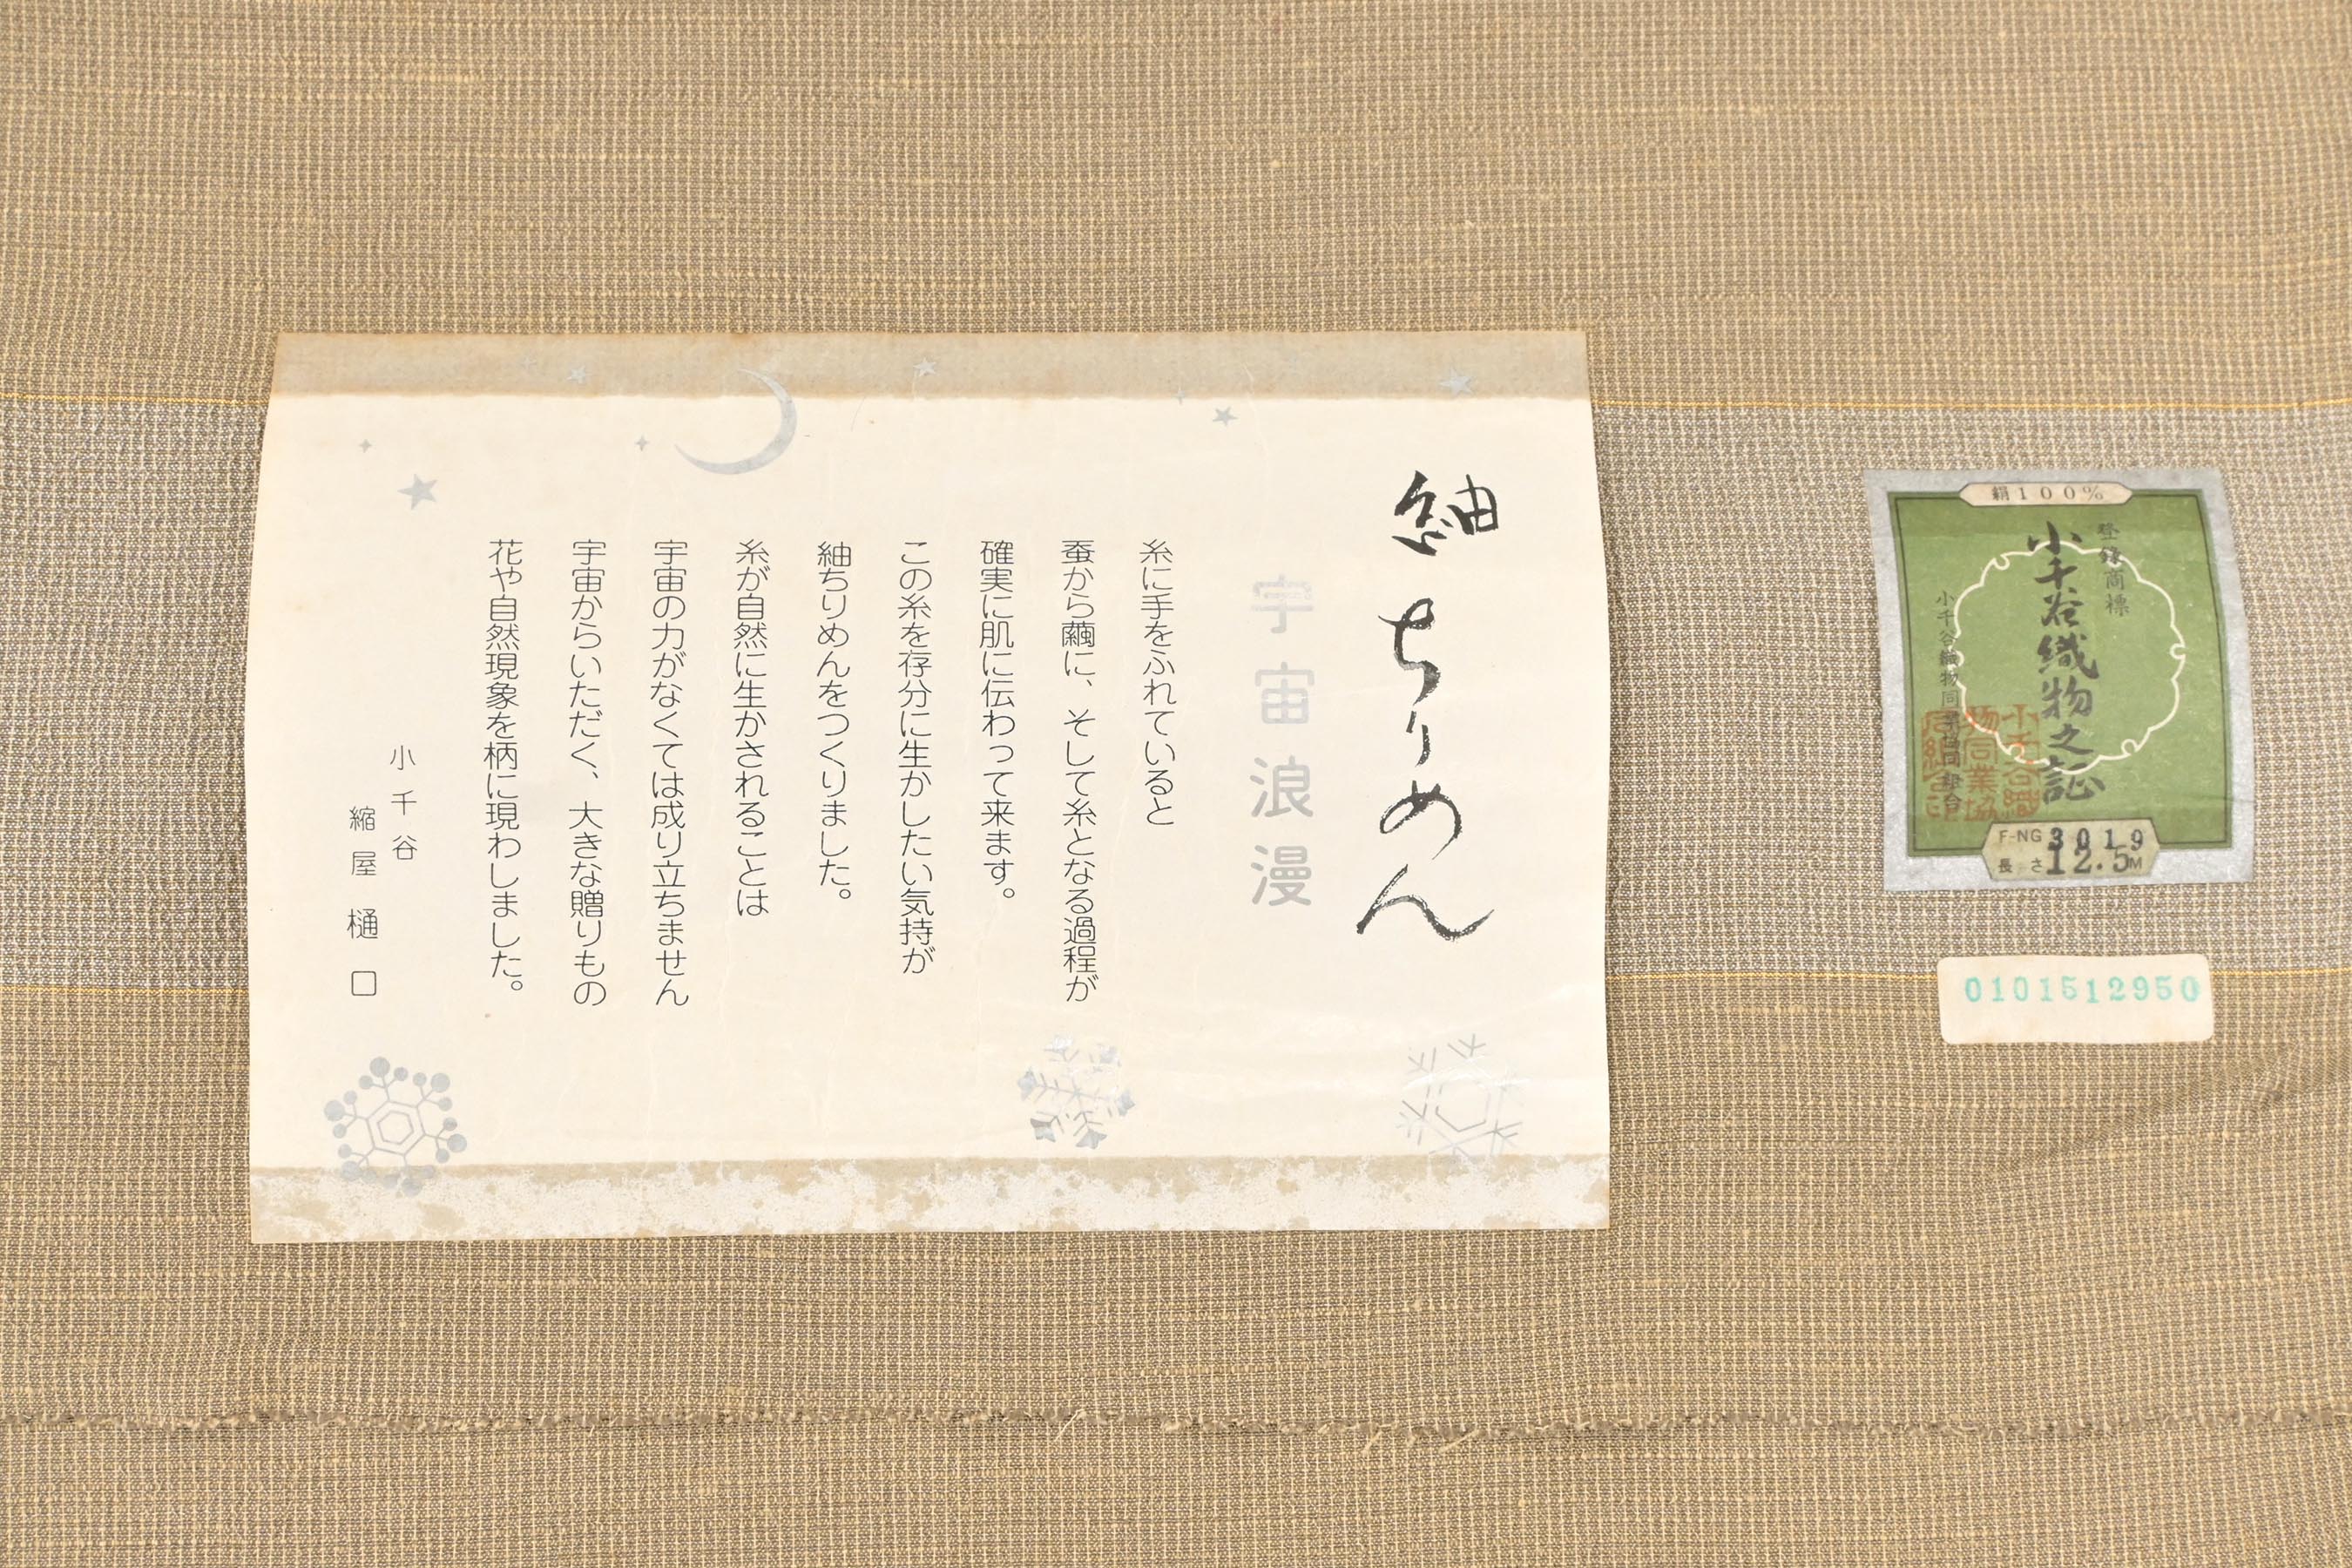 紬ちりめん
宇宙浪漫
糸に手をふれていると
蚕から繭に、そして糸となる過程が
確実に肌に伝わって来ます。
この糸を存分に生かしたい気持が
紬ちりめんをつくりました。
糸が自然に生かされることは
宇宙の力がなくては成り立ちません
宇宙からいただく、大きな贈りもの
花や自然現象を柄に現わしました。
小千谷
縮屋 樋口
絹100%
登錄商標
小千谷織物之証
小千谷織物同業協同組合
小千谷織
物同業協
同組合印
F-NG 3019
長さ 12.5M
0101512950